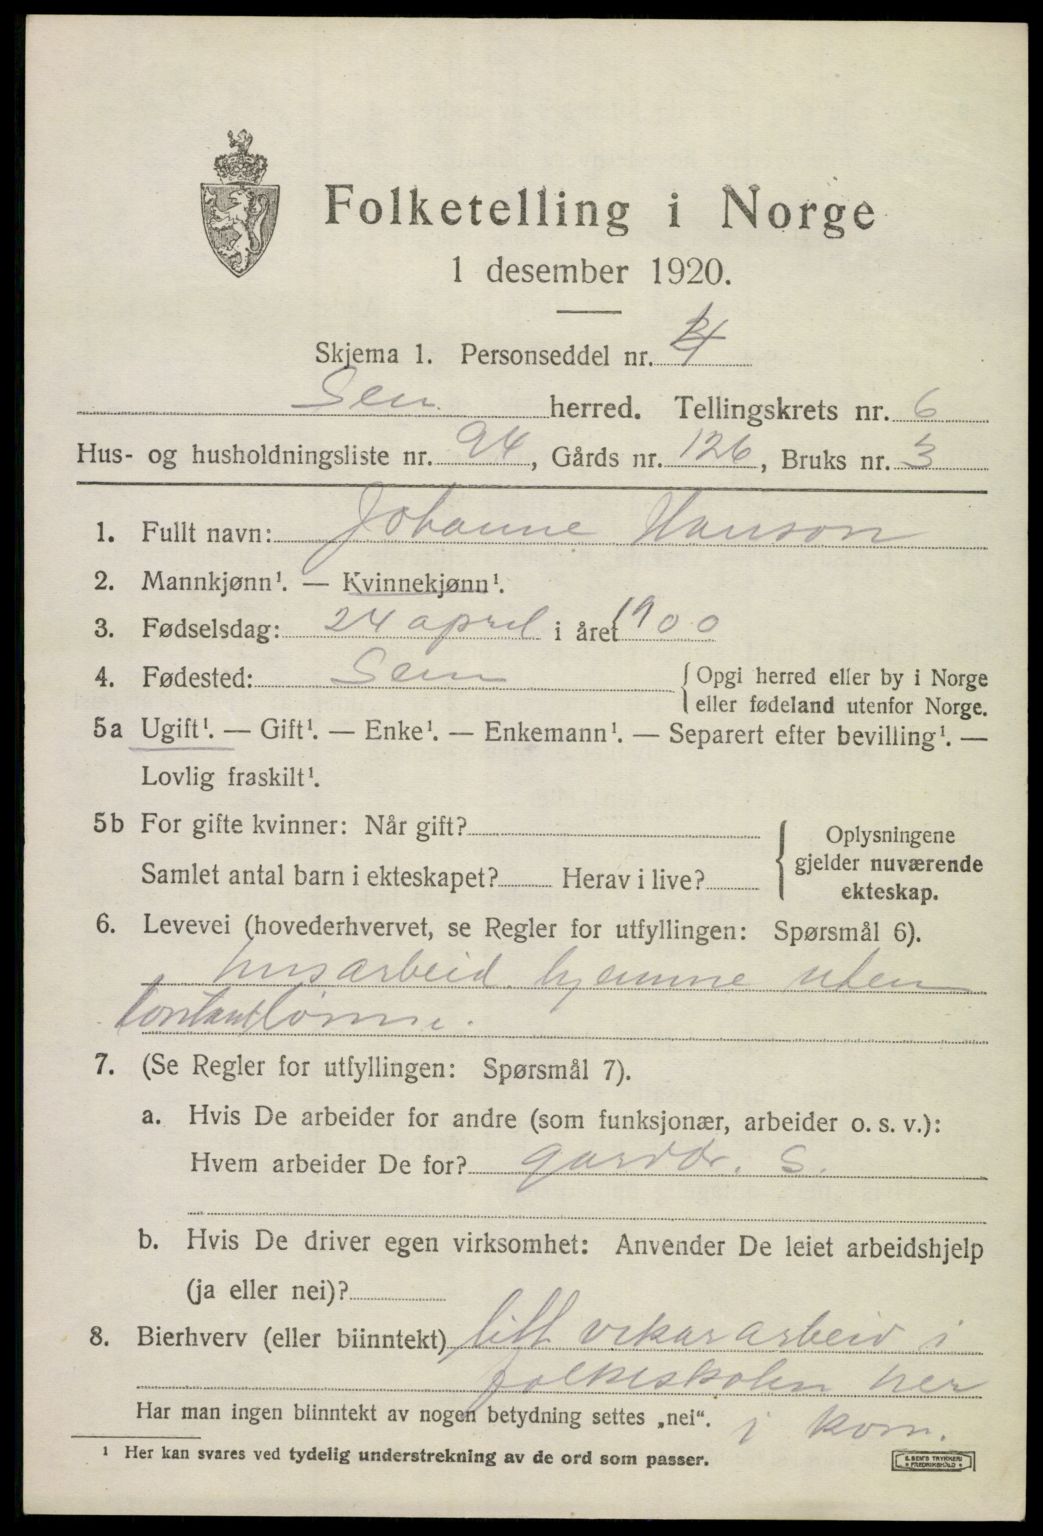 Folketelling i Norge
1 desember 1920.
Skjema 1. Personseddel nr. 4
Sem herred. Tellingskrets nr. 6
Hus- og husholdningsliste nr. 94, Gårds nr. 126, Bruks nr. 3
1. Fullt navn: Johanne Hanson
2. Mannkjønn¹. — Kvinnekjønn¹.
3. Fødselsdag: 24 april i året 1900
4. Fødested: Sem { Opgi herred eller by i Norge
eller fødeland utenfor Norge.
5a Ugift¹. — Gift¹. — Enke¹. — Enkemann¹. — Separert efter bevilling¹. —
Lovlig fraskilt¹.
5b For gifte kvinner: Når gift?
Samlet antal barn i ekteskapet? Herav i live?
{ Oplysningene
gjelder nuværende
ekteskap.
6. Levevei (hovederhvervet, se Regler for utfyllingen: Spørsmål 6).
husarbeid hjemme uten
kontantlønn.
7. (Se Regler for utfyllingen: Spørsmål 7).
a. Hvis De arbeider for andre (som funksjonær, arbeider o. s. v.):
Hvem arbeider De for? gårdbr. S.
b. Hvis De driver egen virksomhet: Anvender De leiet arbeidshjelp
(ja eller nei)?
8. Bierhverv (eller biinntekt) litt vikararbeid i
folkeskolen her
Har man ingen biinntekt av nogen betydning settes „nei“. i kom.
¹ Her kan svares ved tydelig understrekning av de ord som passer.